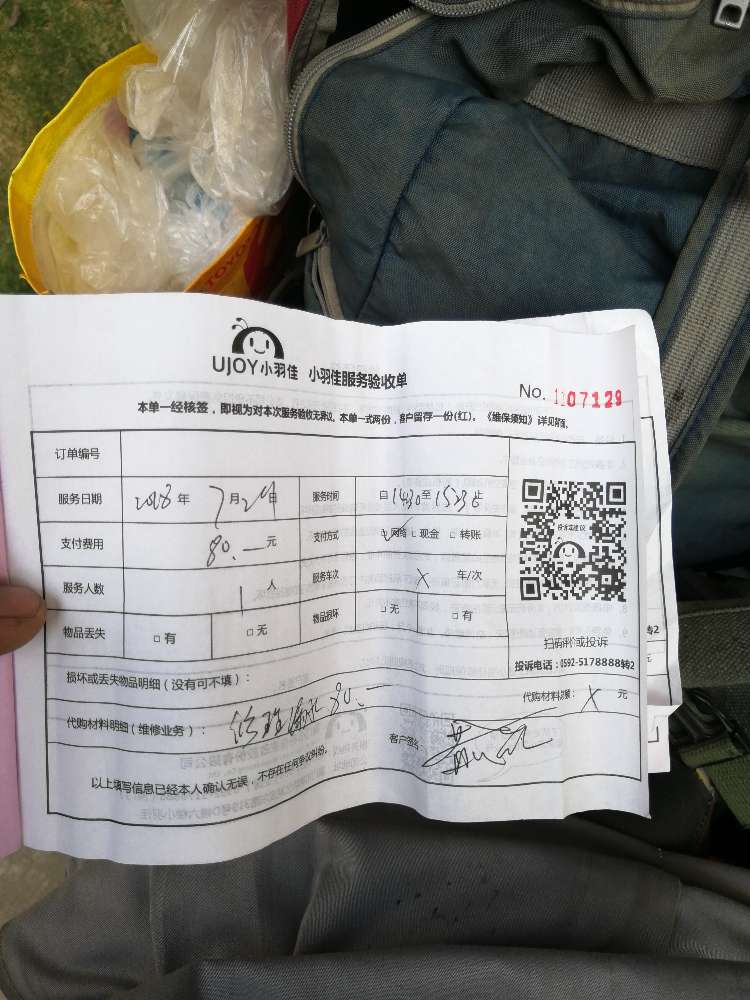 TOYO
UJOY小羽佳 小羽佳服务验收单
No. 1107129
本单一经核签，即视为对本次服务验收无异议。本单一式两份，客户留存一份(红)。《维保须知》详见背面。
订单编号
服务日期 2018年 7月 日 服务时间 自14:30至15:30止
支付费用 80.一元 支付方式 网络 现金 转账
服务人数 1人 服务车次 X 车/次
物品丢失 有 无 物品损坏 无 有
投诉或建议
扫码评价或投诉
投诉电话：0592-5178888转2
损坏或丢失物品明细（没有可不填）：
代购材料金额： X 元
代购材料明细（维修业务）： 80.一
客户签名
以上填写信息已经本人确认无误，不存在任何争议纠纷。